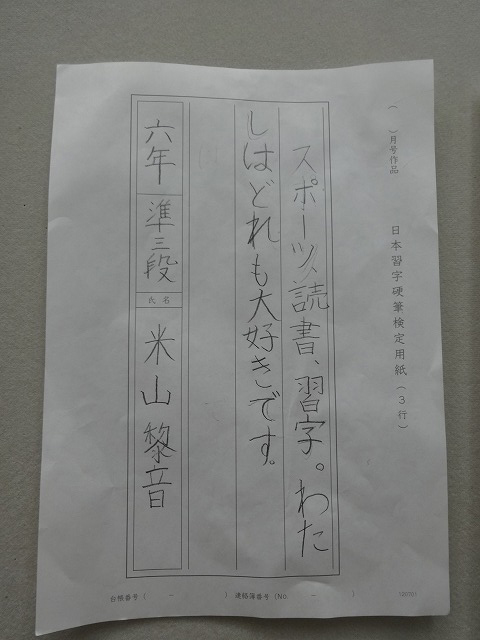 ( )月号作品
日本習字硬筆検定用紙(3行)
スポーツ、読書、習字。わた
しはどれも大好きです。
六年
準三段
氏名
米山黎音
台帳番号( - ) 連絡簿番号(No. - )